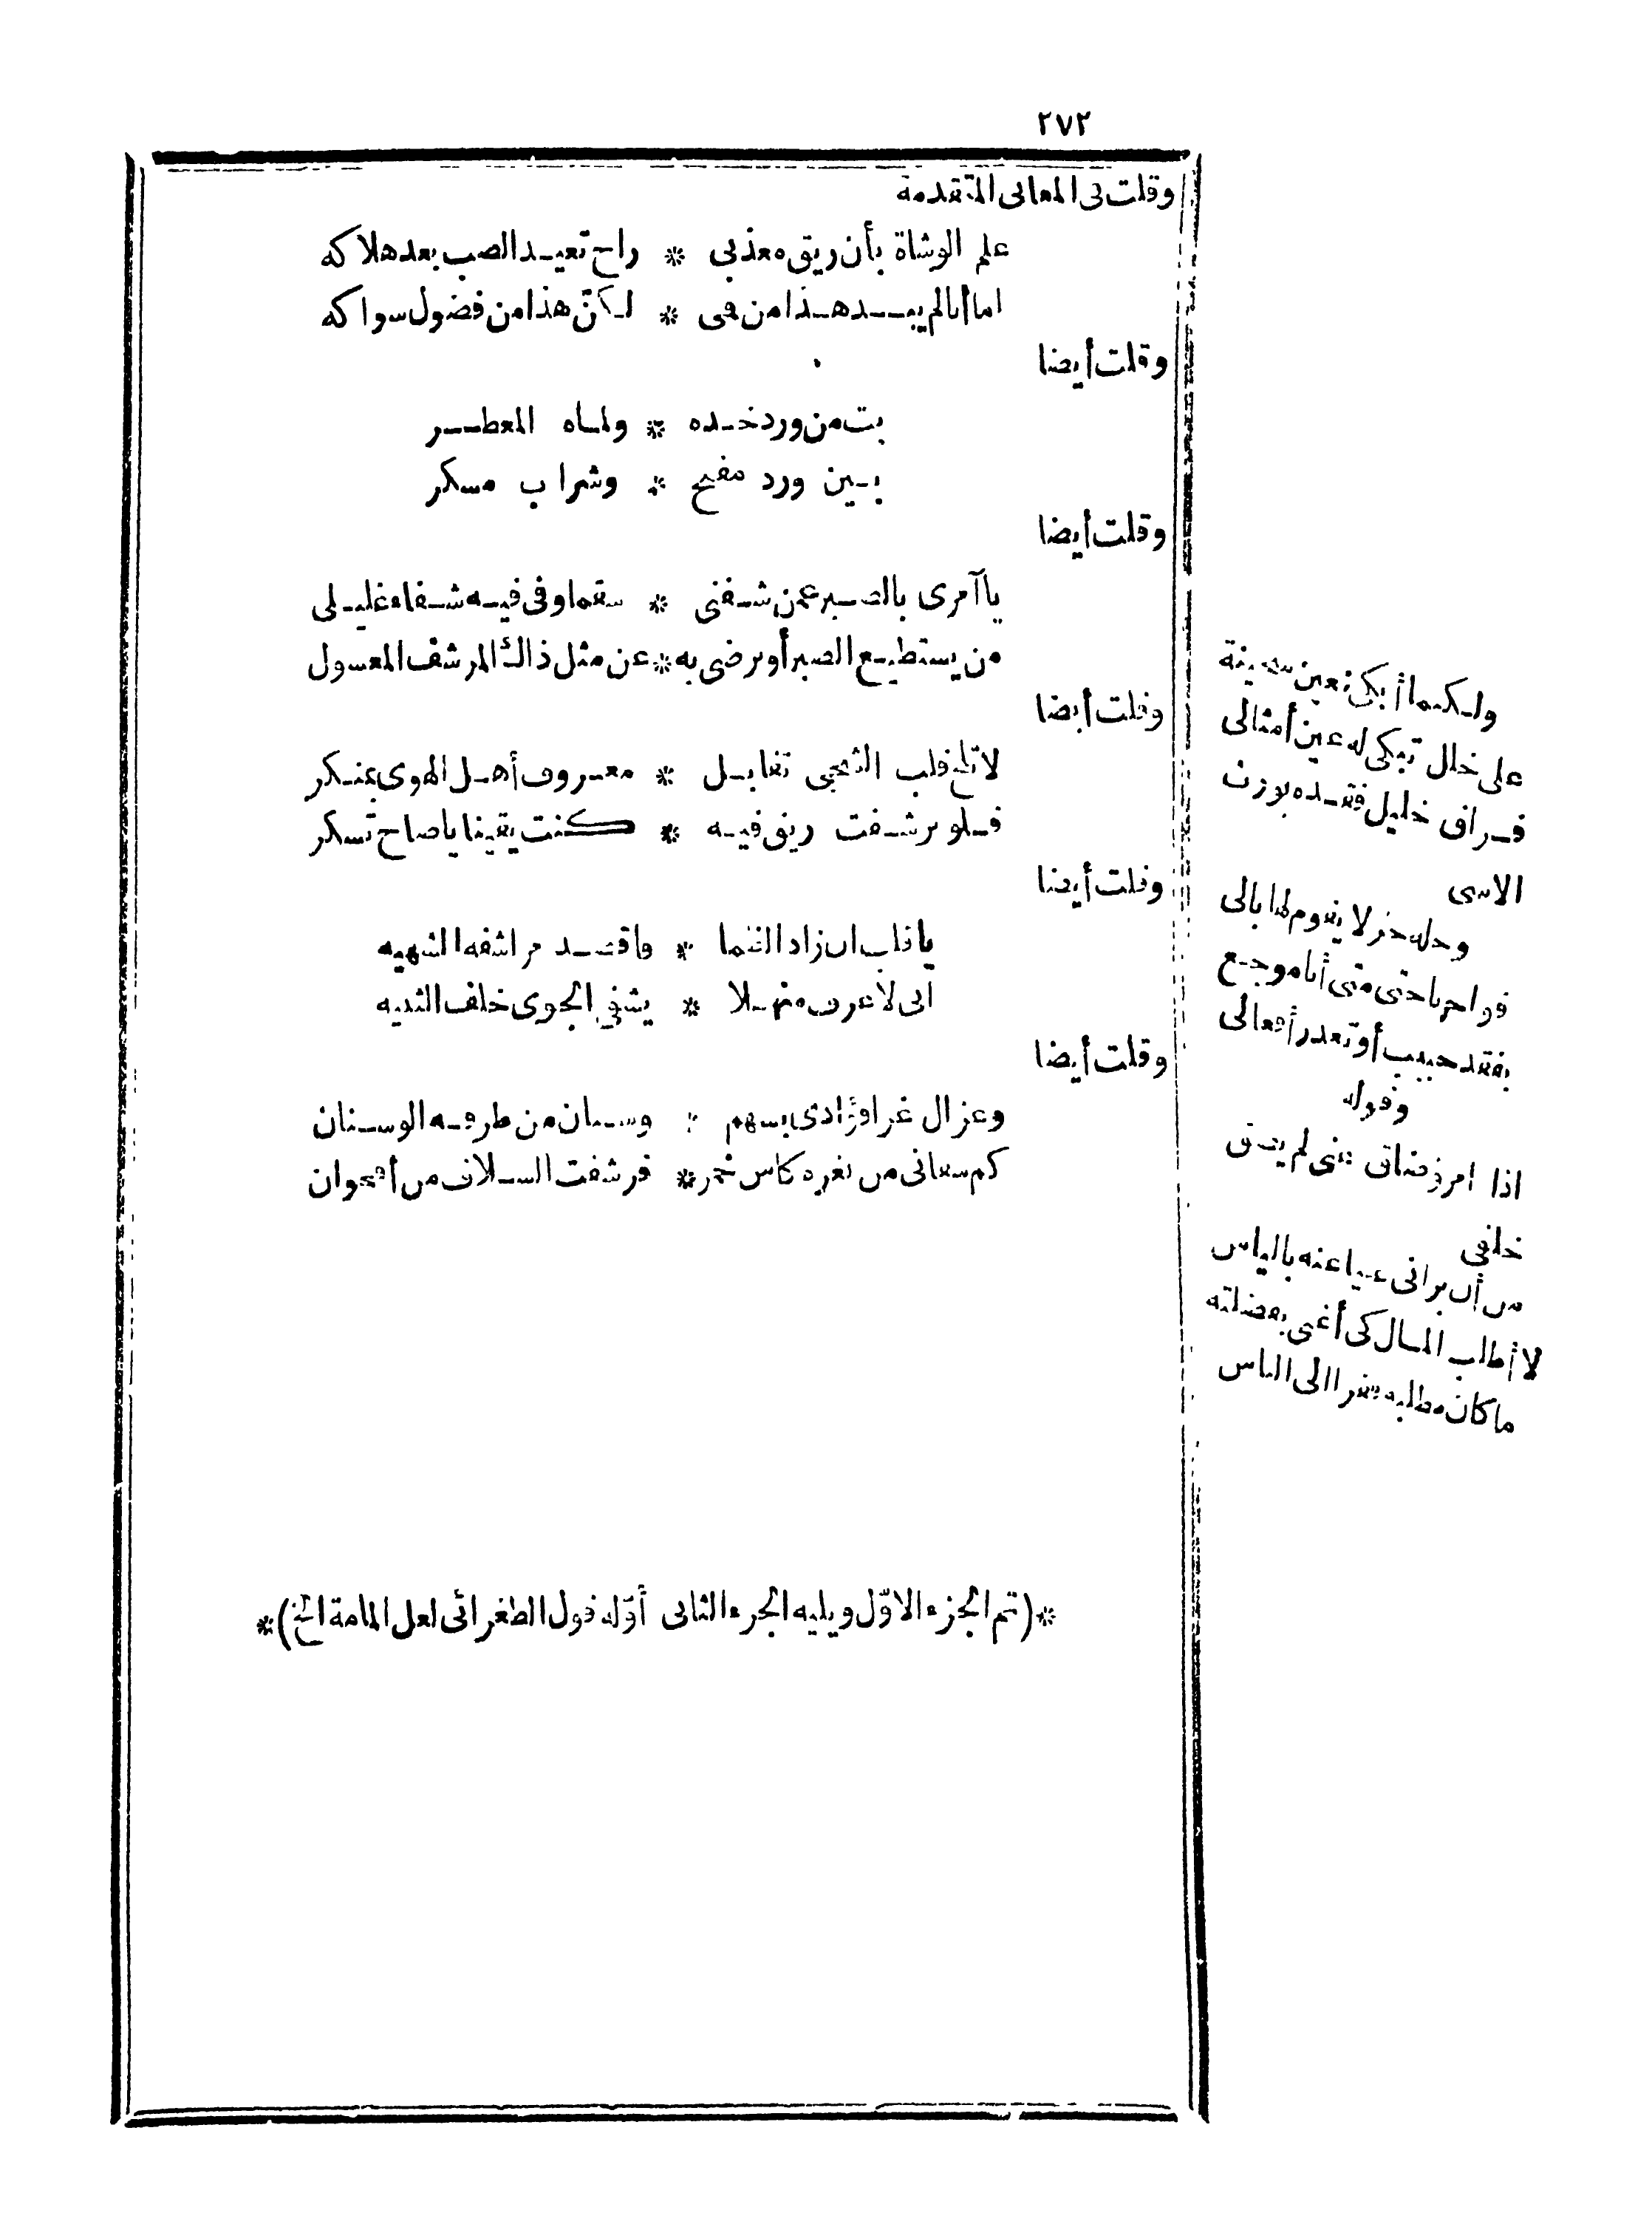 ٢٧٢
وقلت فى المعانى المتقدمة
علم الوشاة بأن ريق معذبى * راح تعيد الصب بعد هلاكه
اما أنا لم يبد هذا من فمى * لكنّ هذا من فضول سواكه
وقلت أيضا
بت من ورد خده * ولماه المعطر
بين ورد مفتح * وشراب مسكر
وقلت أيضا
يا آمرى بالصبر عمن شفنى * سقما وفى فيه شفاء غليلى
من يستطيع الصبر أو يرضى به * عن مثل ذاك المرشف المعسول
وقلت أيضا
لا تلح قلب الشجى تقابل * معروف أهل الهوى بمنكر
فلو رشفت ريق فيه * كنت يقينا يا صاح تسكر
وقلت أيضا
يا قلب ان زاد الظما * فاقصد مراشفه الشهيه
انى لاعرف منهلا * يشفى الجوى خلف الثنيه
وقلت أيضا
وغزال غزا فؤادى بسهم * وسنان من طرفه الوسنان
كم سقانى من ثغره كاس خمر * فرشفت السلاف من أقحوان
*(تم الجزء الاوّل ويليه الجزء الثانى أوّله قول الطغرائى لعل المامة الخ)*
ولكنما أبكى بعين سخينة
على خال تبكى له عين أمثالى
فراق خليل فقده يورث
الاسى
وخلة حر لا يقوم لها بالى
فواحربا حتى متى أنا موجع
بفقد حبيب أو تعذر أفعالى
وقوله
اذا امرؤ ضاق عنى لم يضق
خلقى
من أن يرانى غنيا عنه بالياس
لا أطلب المال كى أغنى بفضلته
ما كان مطلبه فقرا الى الناس